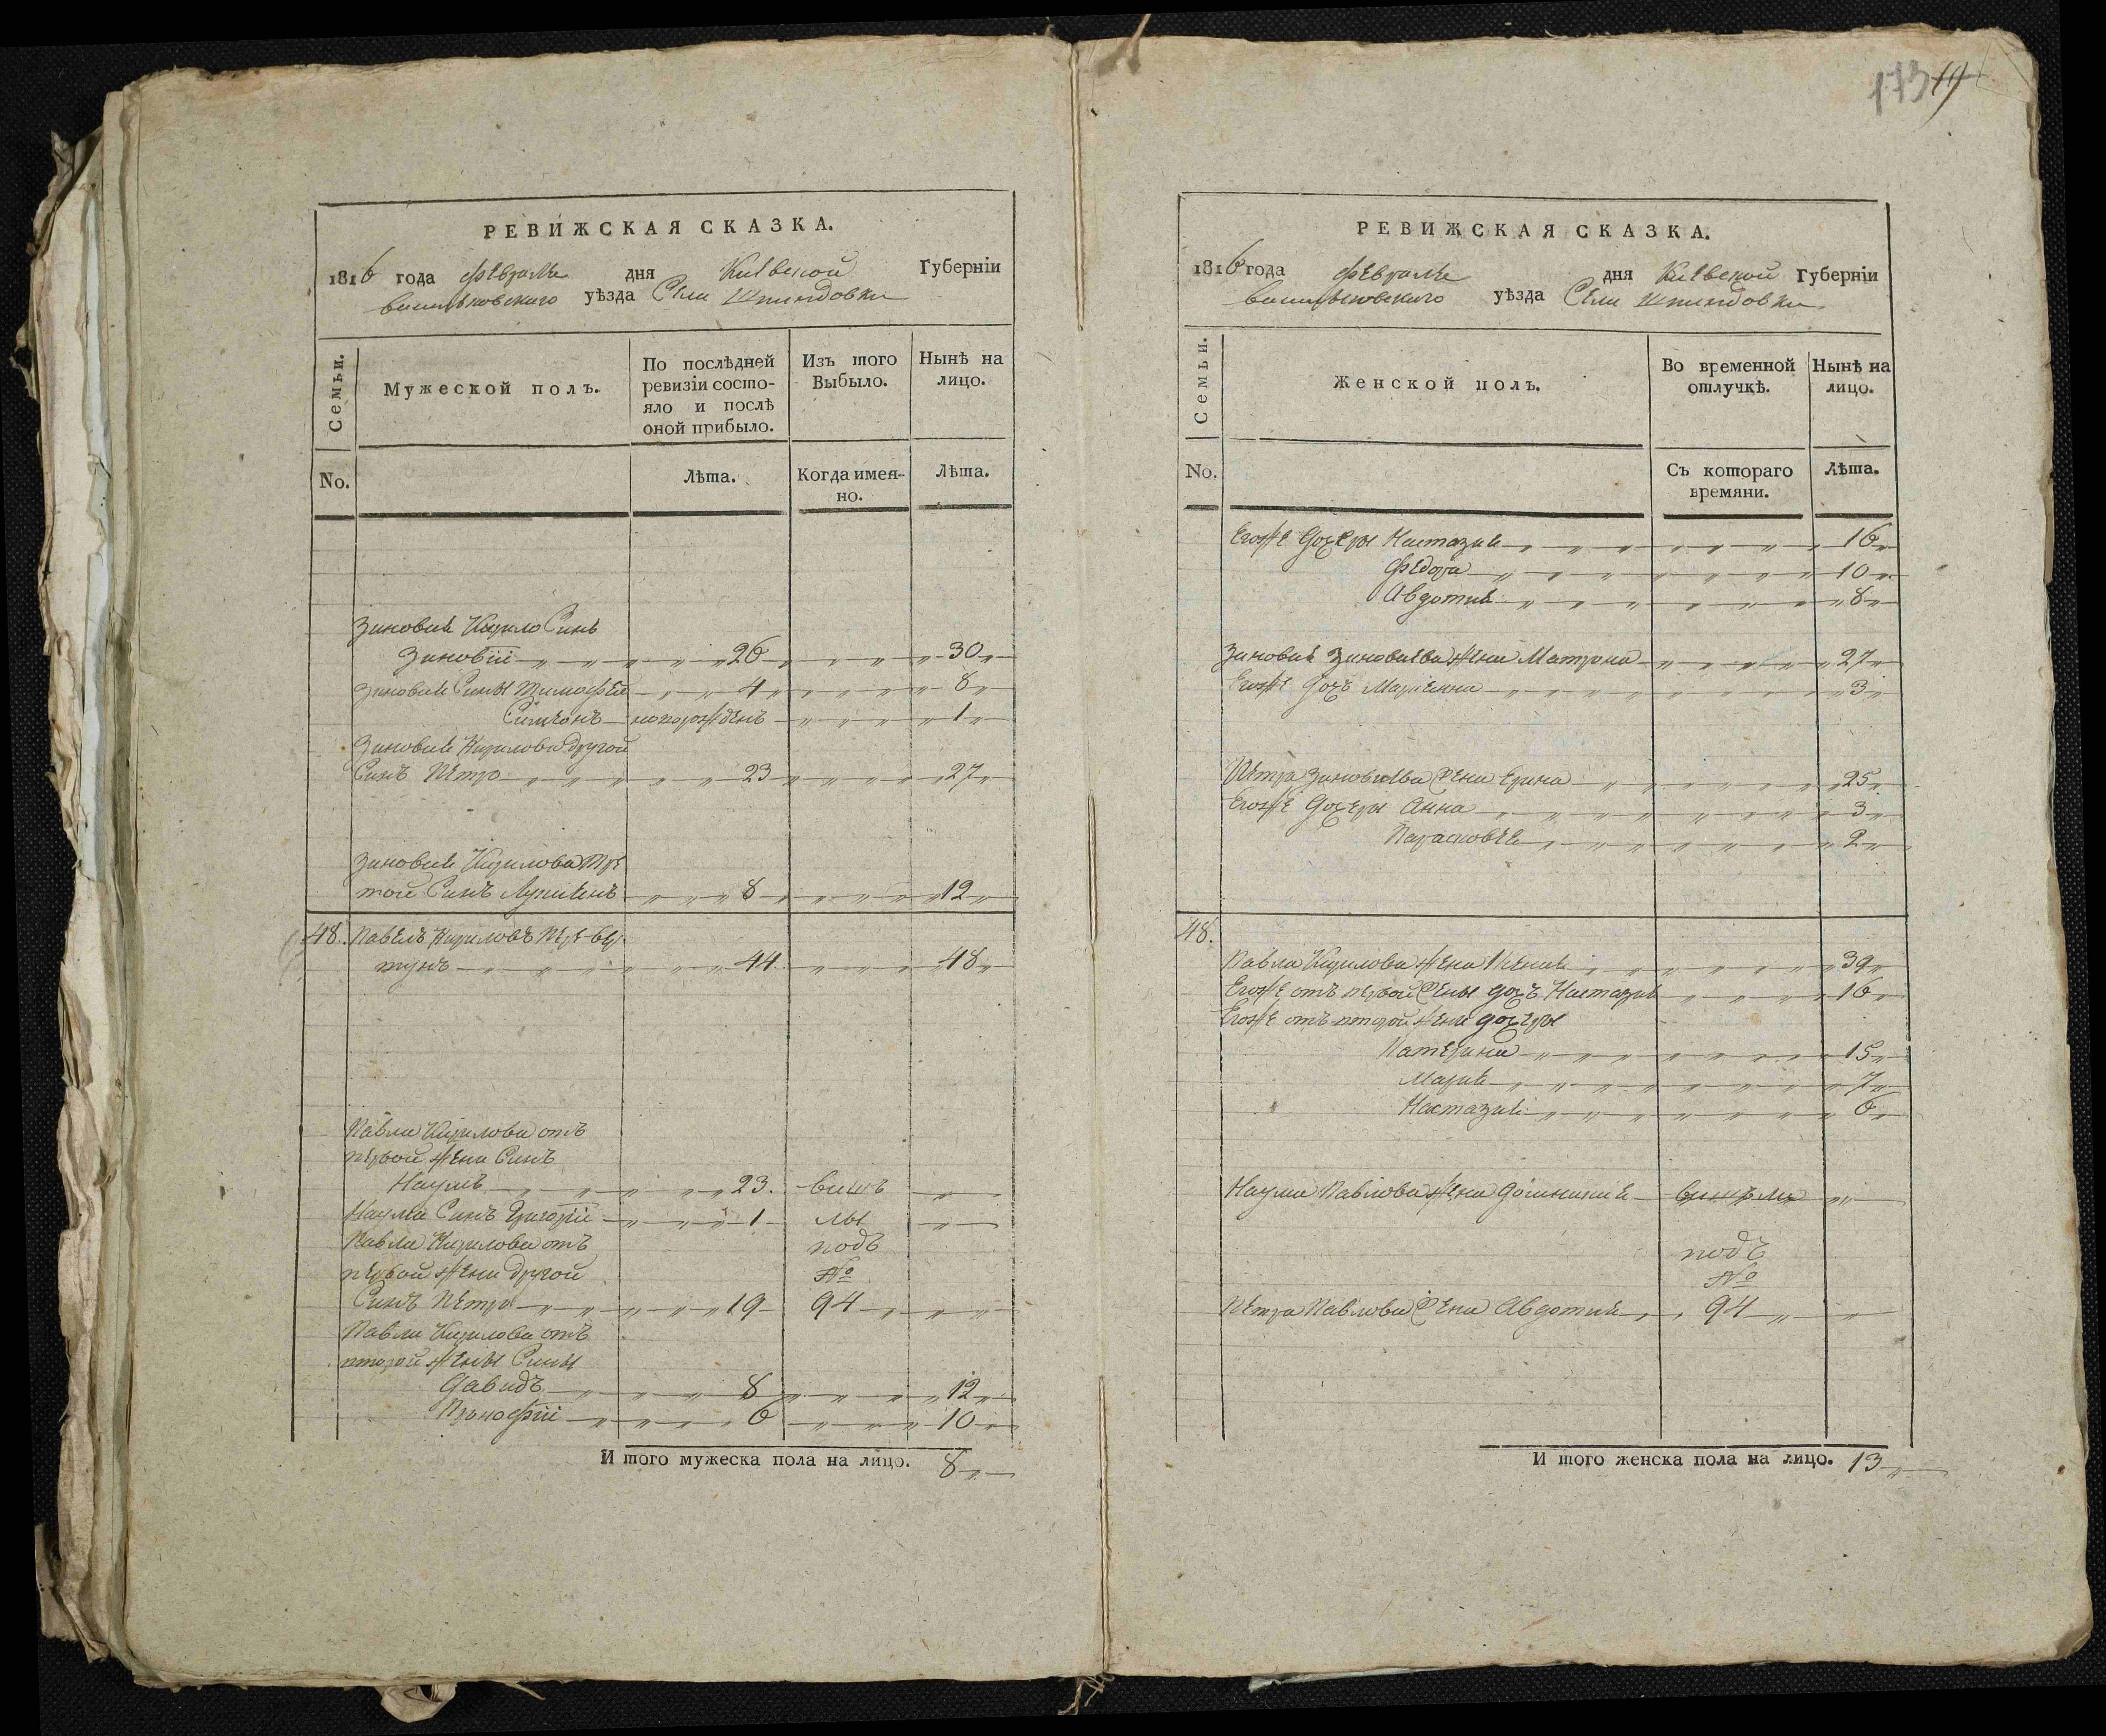 173 19
РЕВИЖСКАЯ СКАЗКА.
1816 года Февраля дня Киевской Губерніи
Васильковского уѣзда Села Шпиндовки
Семьи.
Мужеской полъ.
По послѣдней ревизіи состояло и послѣ оной прибыло.
Изъ того Выбыло.
Нынѣ на лицо.
No.
Лѣта.
Когда именно.
Лѣта.
Зиновия Кирило Синъ
Зиновій 26 30
Зиновия Сины Тимофей 4 8
Симеонъ новорожденъ 1
Зиновия Кирилова другой
Синъ Петро 23 27
Зиновия Кирилова тре
той Синъ Лукиянъ 8 12
48. Павелъ Кириловъ
44 48
Павла Кирилова отъ
первой жени Синъ
Наумъ 23. вишъ
Наума Синъ Григорій 1 лы
Павла Кирилова отъ подъ
первой жени другой №
Синъ Петро 19 94
Павла Кирилова отъ
второй жены Сины
Давидъ 8 12
Прокофій 6 10
И того мужеска пола на лицо. 8
РЕВИЖСКАЯ СКАЗКА.
1816 года Февраля дня Киевской Губерніи
Васильковского уѣзда Села Шпиндовки
Семьи.
Женской полъ.
Во временной отлучкѣ.
Нынѣ на лицо.
No.
Съ котораго времяни.
Лѣта.
Егоже дочеры Настазия 16
Федора 10
Авдотия 8
Зиновия Зиновиева жена Матрона 27
Егоже дочъ Мариянна 3
Петра Зиновиева жена Ерина 25
Егоже дочеры Анна 3
Парасковея 2
48.
Павла Кирилова жена Ксения 39
Егоже отъ первой жены дочъ Настазия 16
Егоже отъ второй жени дочеры
Катерина 15
Мария 7
Настазия 6
Наума Павлова жена Домникия вишъли
подъ
№
Петра Павлова жена Авдотия 94
И того женска пола на лицо. 13